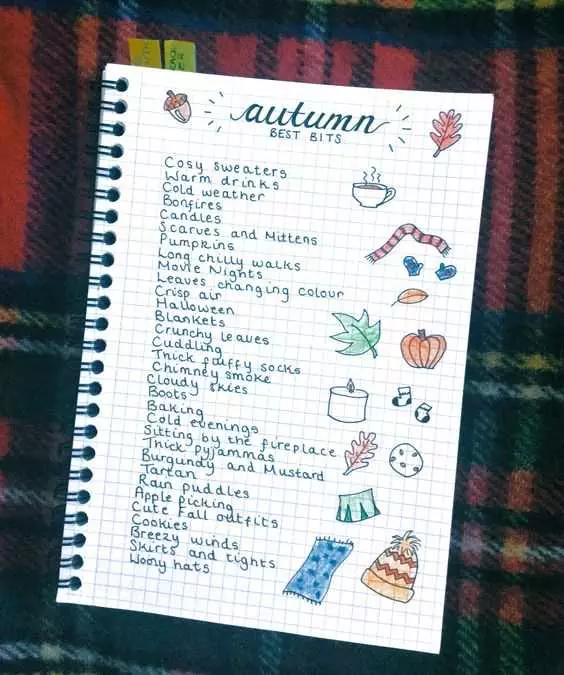 autumn
BEST BITS
Cosy sweaters
Warm drinks
Cold weather
Bonfires
Candles
Scarves and Mittens
Pumpkins
Long chilly walks
Movie Nights
Leaves changing colour
Crisp air
Halloween
Blankets
Crunchy leaves
Cuddling
Thick fluffy socks
Chimney smoke
Cloudy skies
Boots
Baking
Cold evenings
Sitting by the fireplace
Thick pyjammas
Burgundy and Mustard
Tartan
Rain puddles
Apple picking
Cute Fall outfits
Cookies
Breezy winds
Skirts and tights
Woolly hats